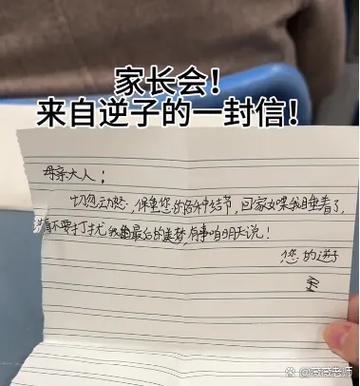 家长会！
来自逆子的一封信！
母亲大人：
切忽动怒，保重您的各种结节，回家如果我睡着了，
请不要打扰我最后的美梦，有事咱明天说！
您的逆子